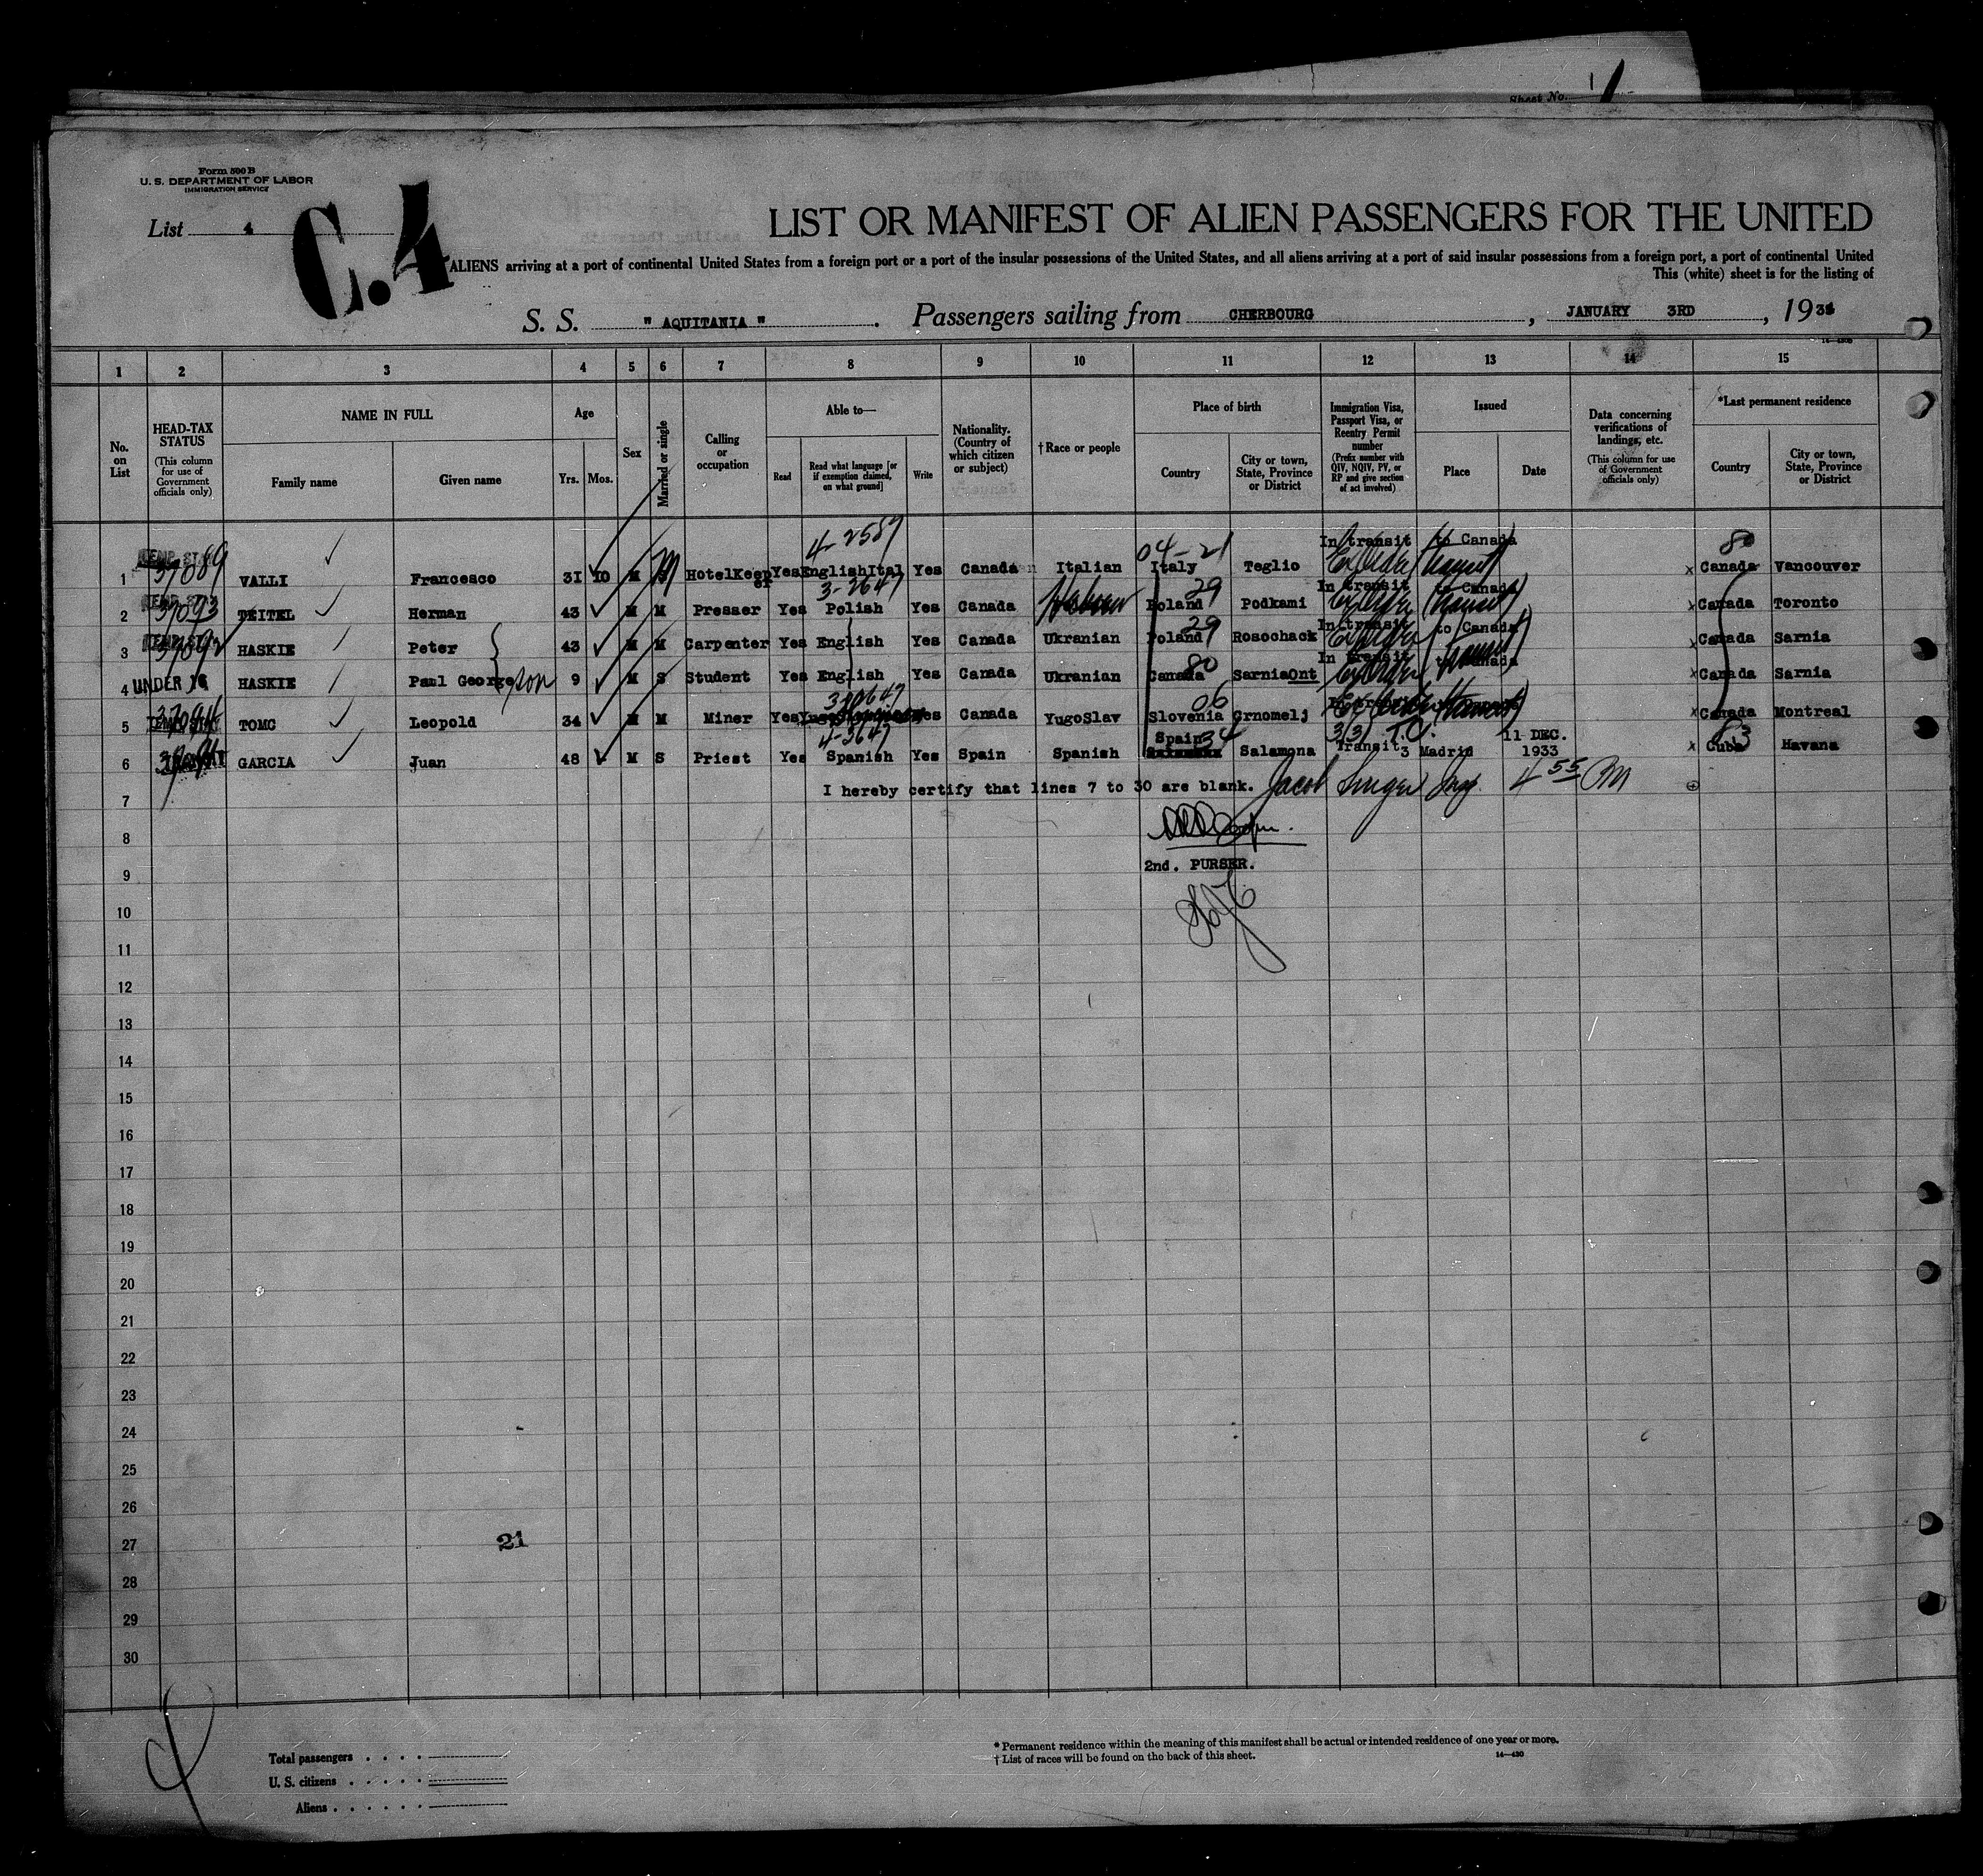 Sheet No. 1
Form 500 B
U. S. DEPARTMENT OF LABOR
IMMIGRATION SERVICE
List 4
C.4
LIST OR MANIFEST OF ALIEN PASSENGERS FOR THE UNITED
ALIENS arriving at a port of continental United States from a foreign port or a port of the insular possessions of the United States, and all aliens arriving at a port of said insular possessions from a foreign port, a port of continental United
This (white) sheet is for the listing of
S. S. " AQUITANIA ". Passengers sailing from CHERBOURG, JANUARY 3RD, 1934
1 2 3 4 5 6 7 8 9 10 11 12 13 14 15
No. on List
HEAD-TAX STATUS (This column for use of Government officials only)
NAME IN FULL
Family name
Given name
Age
Yrs. Mos.
Sex
Married or single
Calling or occupation
Able to—
Read
Read what language [or if exemption claimed, on what ground]
Write
Nationality. (Country of which citizen or subject)
†Race or people
Place of birth
Country
City or town, State, Province or District
Immigration Visa, Passport Visa, or Reentry Permit number (Prefix number with QIV, NQIV, PV, or RP and give section of act involved)
Issued
Place
Date
Data concerning verifications of landings, etc. (This column for use of Government officials only)
*Last permanent residence
Country
City or town, State, Province or District
4-2587 04-21 In transit to Canada 80
1 37089 VALLI Francesco 31 10 M M HotelKeeper Yes English Ital Yes Canada Italian Italy Teglio x Canada Vancouver
3-2647 29 In transit to Canada
2 37093 TEITEL Herman 43 M M Presser Yes Polish Yes Canada Hebrew Poland Podkami x Canada Toronto
29 In transit to Canada
3 37092 HASKIE Peter 43 M M Carpenter Yes English Yes Canada Ukranian Poland Rosochack x Canada Sarnia
80 In transit to Canada
4 UNDER 16 HASKIE Paul George son 9 M S Student Yes English Yes Canada Ukranian Canada Sarnia Ont x Canada Sarnia
06
5 TOMC Leopold 34 M M Miner Yes Yes Canada YugoSlav Slovenia Crnomelj x Canada Montreal
4-3647 Spain 34 3(3) T.O. 11 DEC. 83
6 GARCIA Juan 48 M S Priest Yes Spanish Yes Spain Spanish Salamona Transit 3 Madrid 1933 x Cuba Havana
7 I hereby certify that lines 7 to 30 are blank. Jacob Singer Insp. 4 55 PM
8
2nd. PURSER.
9
10
11
12
13
14
15
16
17
18
19
20
21
22
23
24
25
26
27
21
28
29
30
Total passengers
U. S. citizens
Aliens
* Permanent residence within the meaning of this manifest shall be actual or intended residence of one year or more.
† List of races will be found on the back of this sheet.
14—430